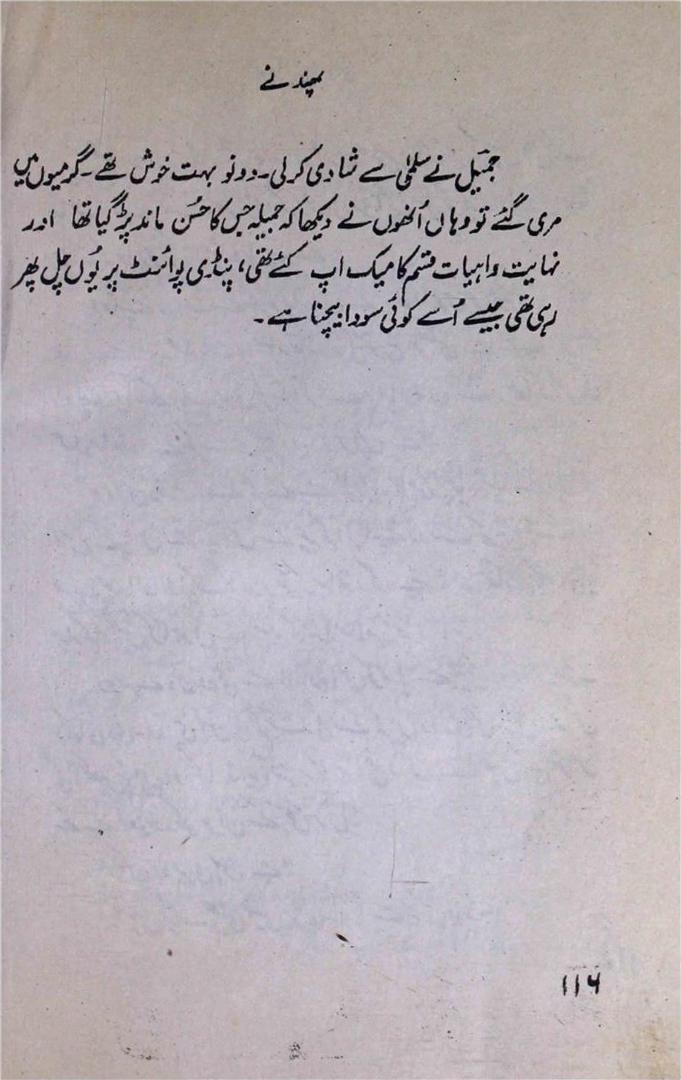 پھندنے
جمیل نے سلمٰی سے شادی کرلی۔ دونو بہت خوش تھے۔ گرمیوں میں
مری گئے تو وہاں اُنھوں نے دیکھا کہ جمیلہ جس کا حُسن ماند پڑ گیا تھا اور
نہایت واہیات قسم کا میک اپ کئے تھی، پنڈی پوائنٹ پر یُوں چل پھر
رہی تھی جیسے اُسے کوئی سودا بیچنا ہے۔
۱۱۶